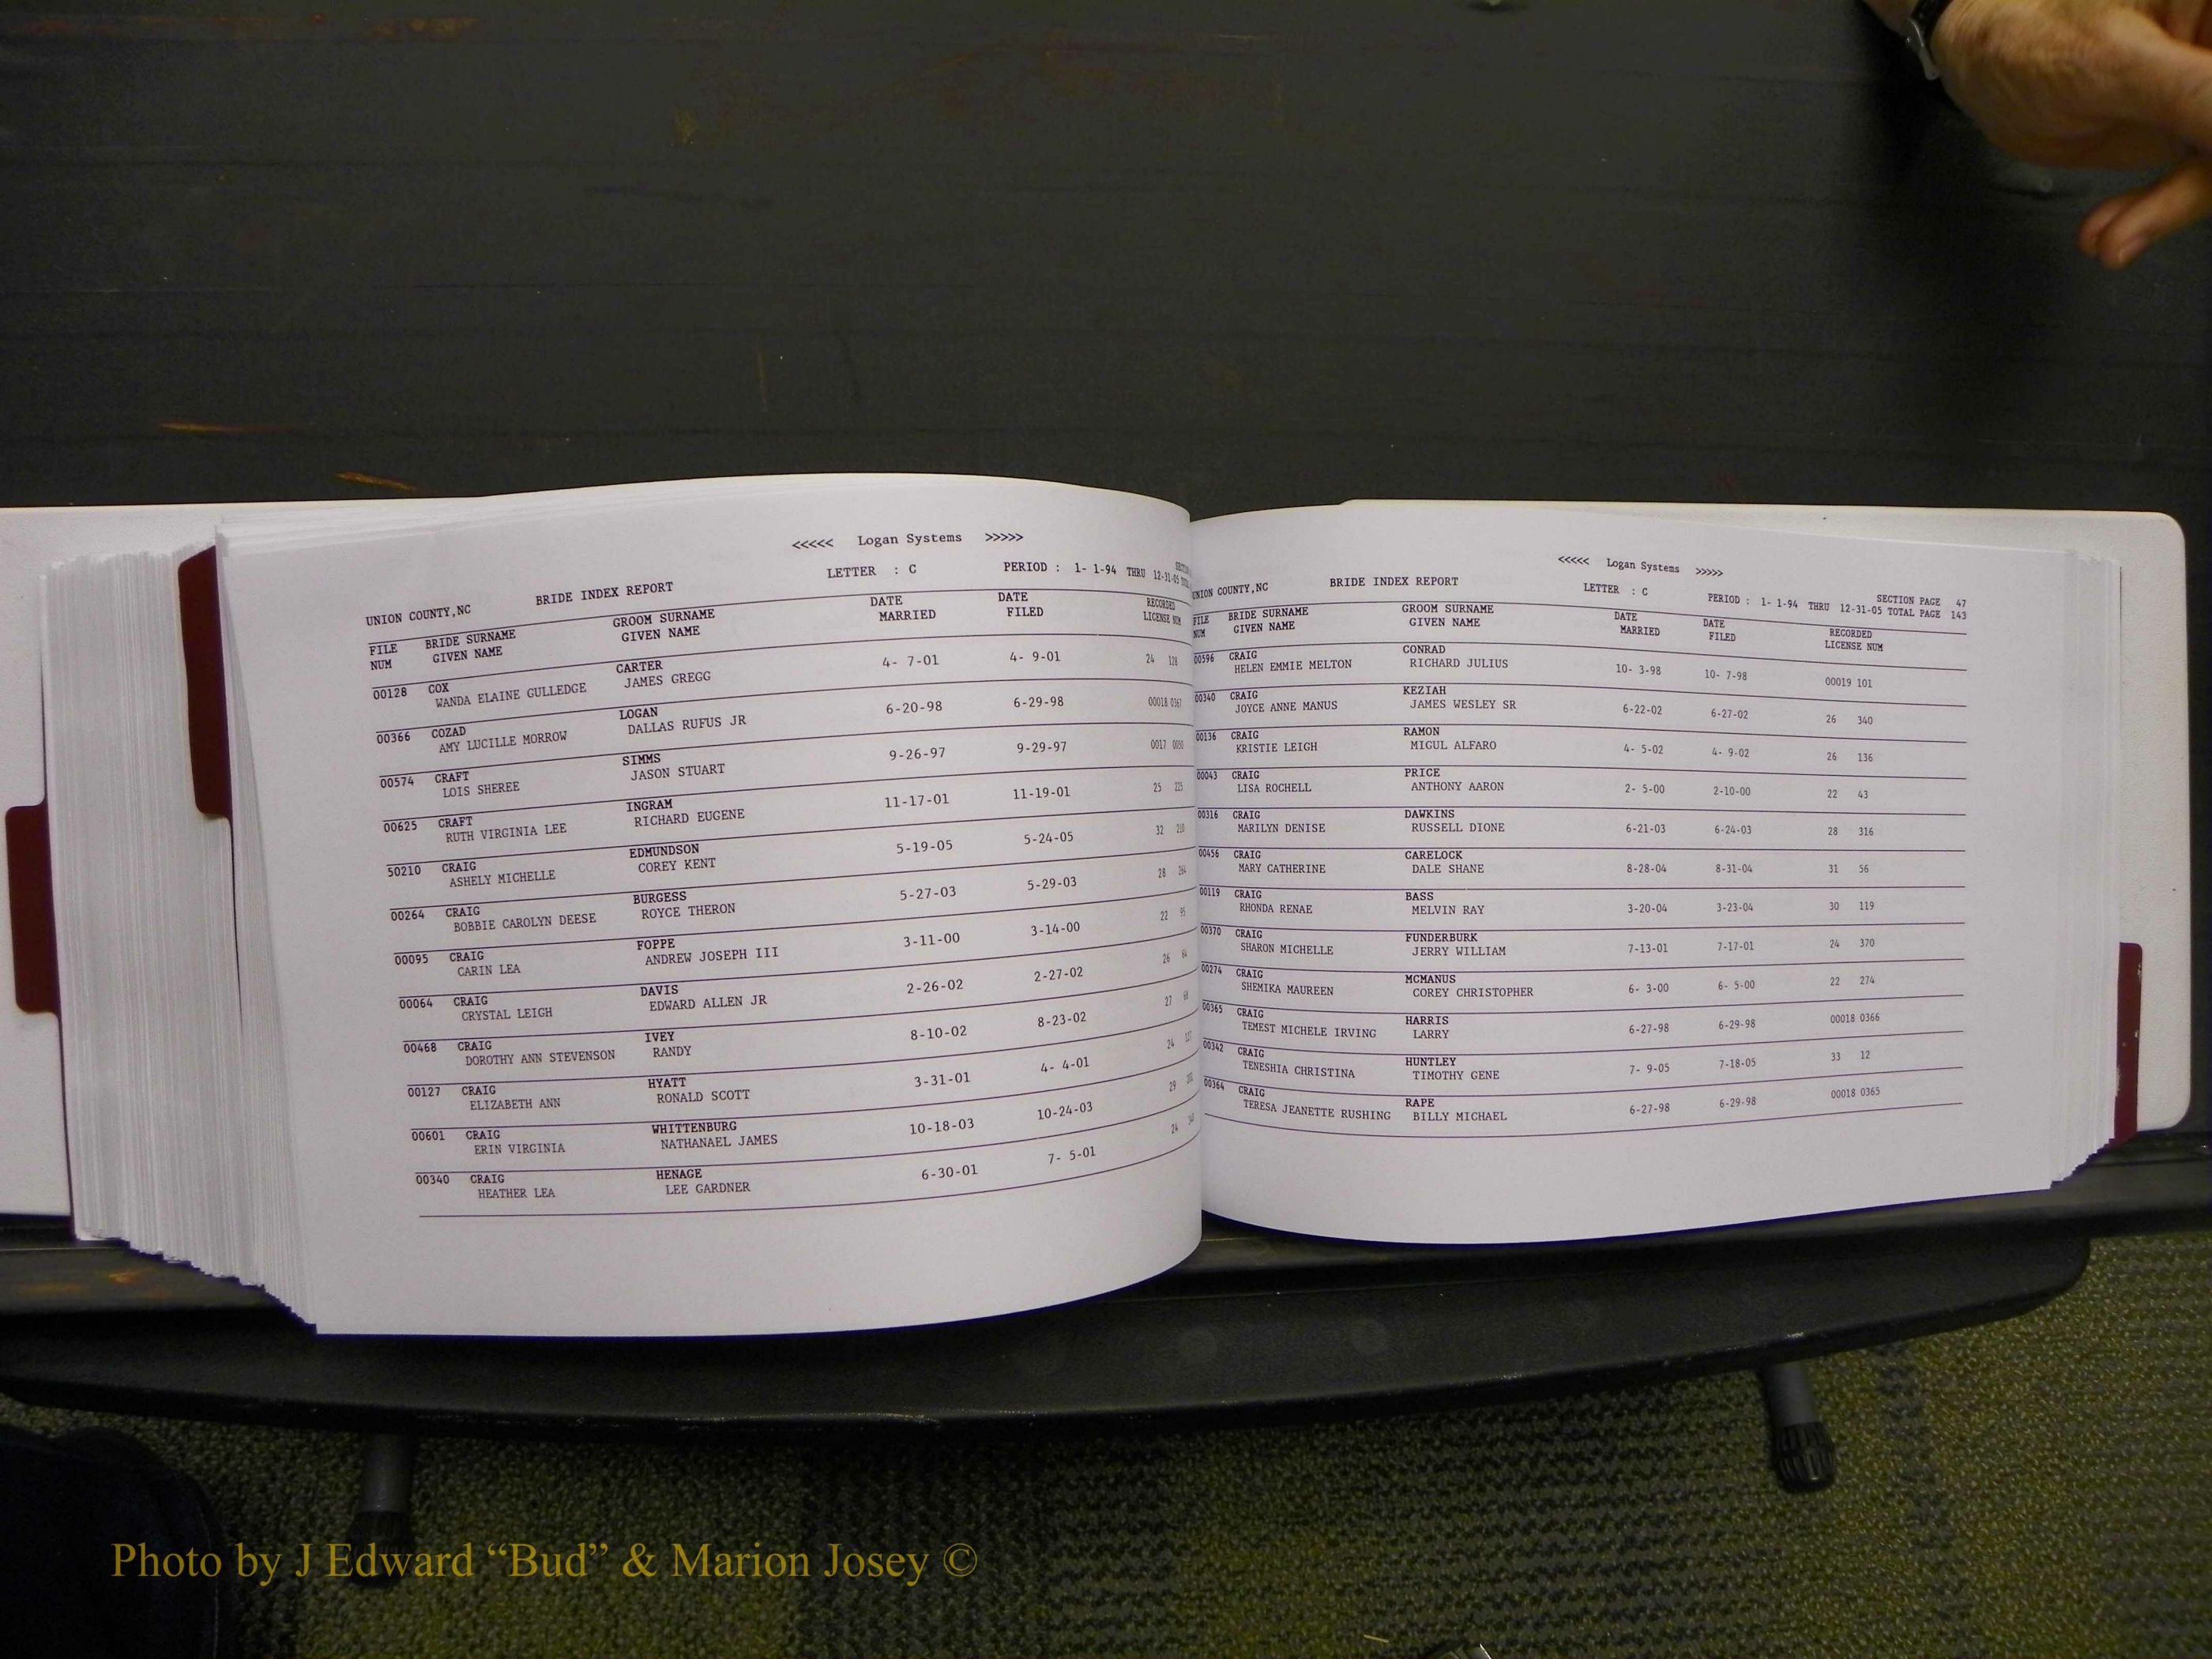 <<<<< Logan Systems >>>>>
UNION COUNTY,NC BRIDE INDEX REPORT LETTER : C PERIOD : 1- 1-94 THRU 12-31-05
FILE BRIDE SURNAME GROOM SURNAME DATE DATE RECORDED
NUM GIVEN NAME GIVEN NAME MARRIED FILED LICENSE NUM
00128 COX CARTER 4- 7-01 4- 9-01 24 128
WANDA ELAINE GULLEDGE JAMES GREGG
00366 COZAD LOGAN 6-20-98 6-29-98 00018 0367
AMY LUCILLE MORROW DALLAS RUFUS JR
00574 CRAFT SIMMS 9-26-97 9-29-97 0017
LOIS SHEREE JASON STUART
00625 CRAFT INGRAM 11-17-01 11-19-01 25
RUTH VIRGINIA LEE RICHARD EUGENE
50210 CRAIG EDMUNDSON 5-19-05 5-24-05 32 210
ASHELY MICHELLE COREY KENT
00264 CRAIG BURGESS 5-27-03 5-29-03 28 264
BOBBIE CAROLYN DEESE ROYCE THERON
00095 CRAIG FOPPE 3-11-00 3-14-00 22 95
CARIN LEA ANDREW JOSEPH III
00064 CRAIG DAVIS 2-26-02 2-27-02 26 64
CRYSTAL LEIGH EDWARD ALLEN JR
00468 CRAIG IVEY 8-10-02 8-23-02 27
DOROTHY ANN STEVENSON RANDY
00127 CRAIG HYATT 3-31-01 4- 4-01 24 127
ELIZABETH ANN RONALD SCOTT
00601 CRAIG WHITTENBURG 10-18-03 10-24-03 29
ERIN VIRGINIA NATHANAEL JAMES
00340 CRAIG HENAGE 6-30-01 7- 5-01 24
HEATHER LEA LEE GARDNER
<<<<< Logan Systems >>>>>
UNION COUNTY,NC BRIDE INDEX REPORT LETTER : C SECTION PAGE 47
PERIOD : 1- 1-94 THRU 12-31-05 TOTAL PAGE 143
FILE BRIDE SURNAME GROOM SURNAME DATE DATE RECORDED
NUM GIVEN NAME GIVEN NAME MARRIED FILED LICENSE NUM
00596 CRAIG CONRAD 10- 3-98 10- 7-98 00019 101
HELEN EMMIE MELTON RICHARD JULIUS
00340 CRAIG KEZIAH 6-22-02 6-27-02 26 340
JOYCE ANNE MANUS JAMES WESLEY SR
00136 CRAIG RAMON 4- 5-02 4- 9-02 26 136
KRISTIE LEIGH MIGUL ALFARO
00043 CRAIG PRICE 2- 5-00 2-10-00 22 43
LISA ROCHELL ANTHONY AARON
00316 CRAIG DAWKINS 6-21-03 6-24-03 28 316
MARILYN DENISE RUSSELL DIONE
00456 CRAIG CARELOCK 8-28-04 8-31-04 31 56
MARY CATHERINE DALE SHANE
00119 CRAIG BASS 3-20-04 3-23-04 30 119
RHONDA RENAE MELVIN RAY
00370 CRAIG FUNDERBURK 7-13-01 7-17-01 24 370
SHARON MICHELLE JERRY WILLIAM
00274 CRAIG MCMANUS 6- 3-00 6- 5-00 22 274
SHEMIKA MAUREEN COREY CHRISTOPHER
00365 CRAIG HARRIS 6-27-98 6-29-98 00018 0366
TEMEST MICHELE IRVING LARRY
00342 CRAIG HUNTLEY 7- 9-05 7-18-05 33 12
TENESHIA CHRISTINA TIMOTHY GENE
00364 CRAIG RAPE 6-27-98 6-29-98 00018 0365
TERESA JEANETTE RUSHING BILLY MICHAEL
Photo by J Edward “Bud” & Marion Josey ©